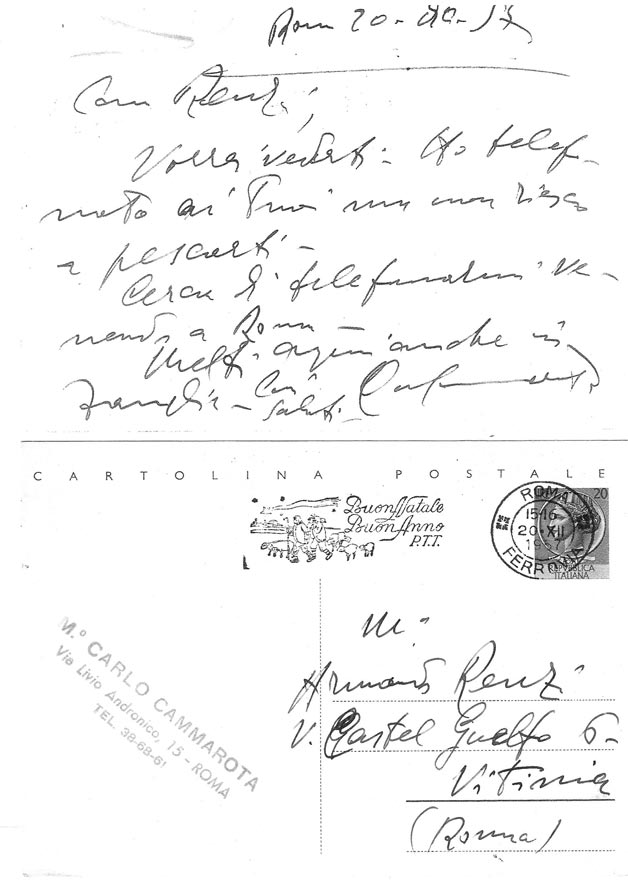 Roma 20-
Caro Renzi,
Vorrei vederti - Ho telef-
nato ai Tuoi ma non riesco
a pescarti -
Cerca di telefonarmi ve-
nendo a Roma -
Molti auguri anche in
famiglia - Cari
saluti
CARTOLINA POSTALE
Buon Natale
Buon Anno
P.T.T.
ROMA
15-16
20·XII
FERROVIA
20
REPVBBLICA
ITALIANA
M.° CARLO CAMMAROTA
Via Livio Andronico, 15 - ROMA
TEL. 38-68-61
M.°
Armando Renzi
V. Castel Guelfo 6-
Vitinia
(Roma)